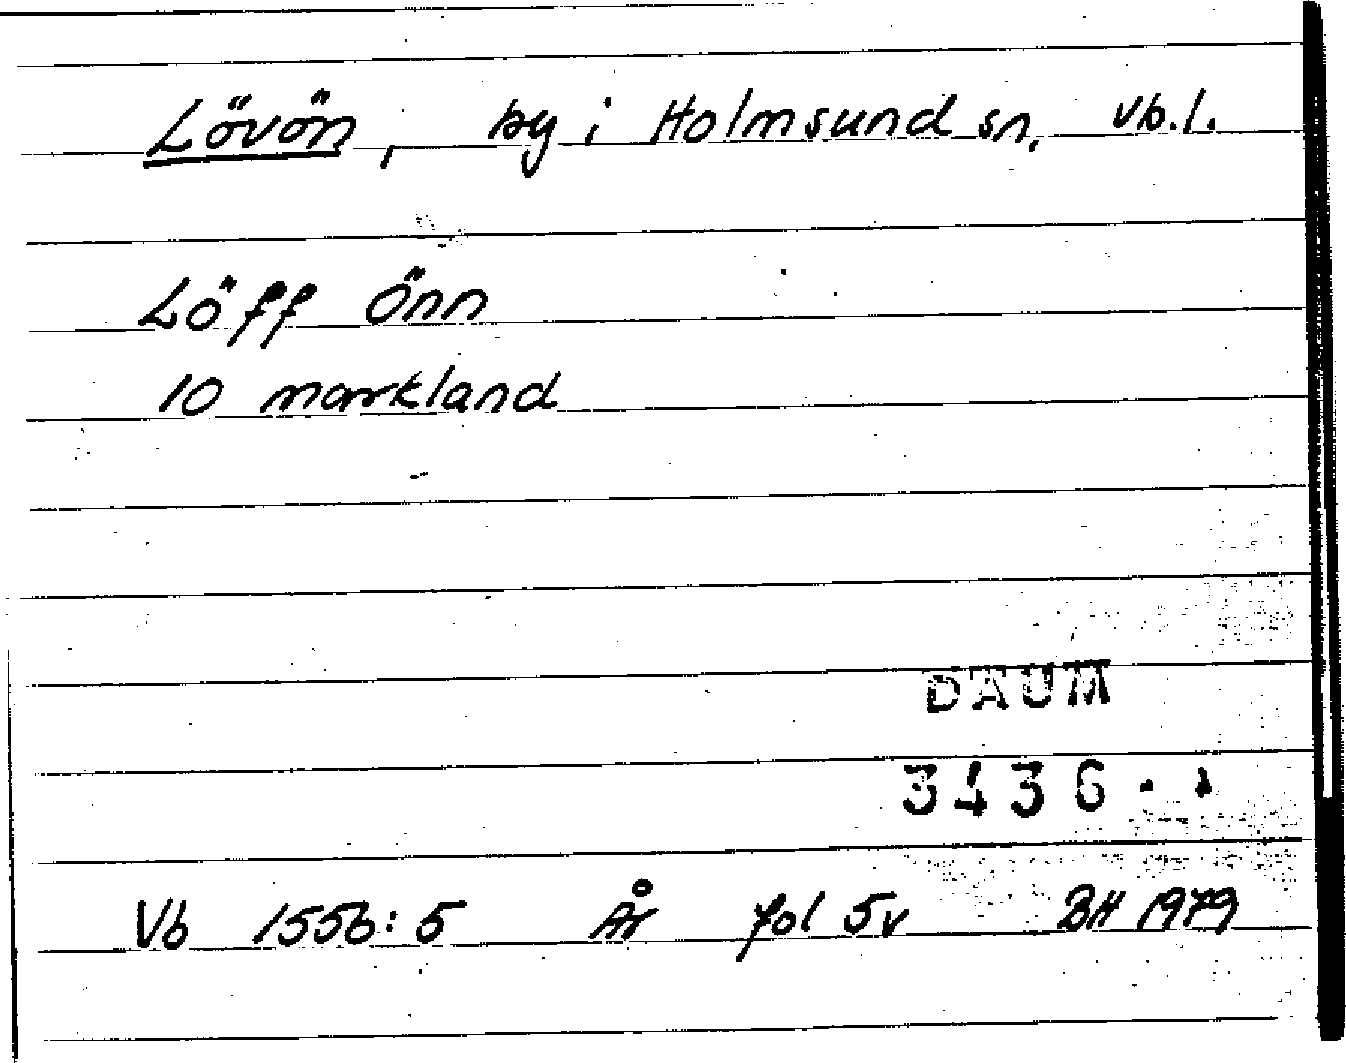 Lövön, by i Holmsund sn, Vb.l.
Löff Önn
10 markland
DAUM
3436
Vb 1556:5 År fol 5v BH 1979